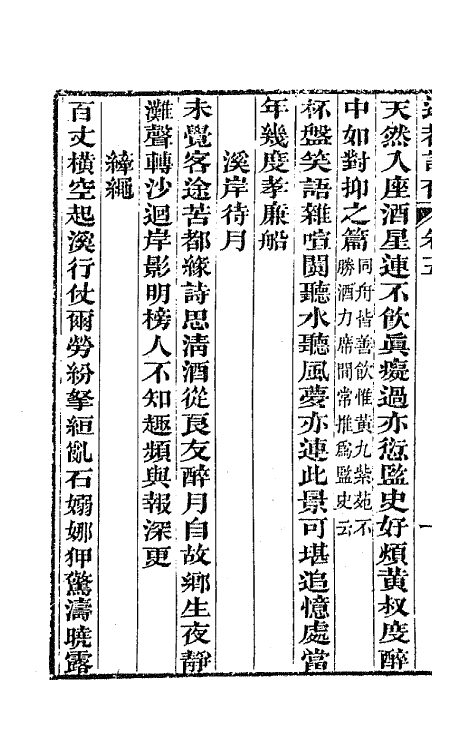 天然入座酒星連不飲眞癡過亦愆監史好煩黃叔度醉
中如對抑之篇同舟皆善飲惟黃九紫苑不
勝酒力席間常推爲監史云
杯盤笑語雜喧闐聽水聽風夢亦連此景可堪追憶處當
年幾度孝廉船
溪岸待月
未覺客途苦都緣詩思淸酒從良友醉月自故鄉生夜靜
灘聲轉沙迴岸影明榜人不知趣頻與報深更
縴繩
百丈橫空起溪行仗爾勞紛拏絙亂石嫋娜狎驚濤曉露